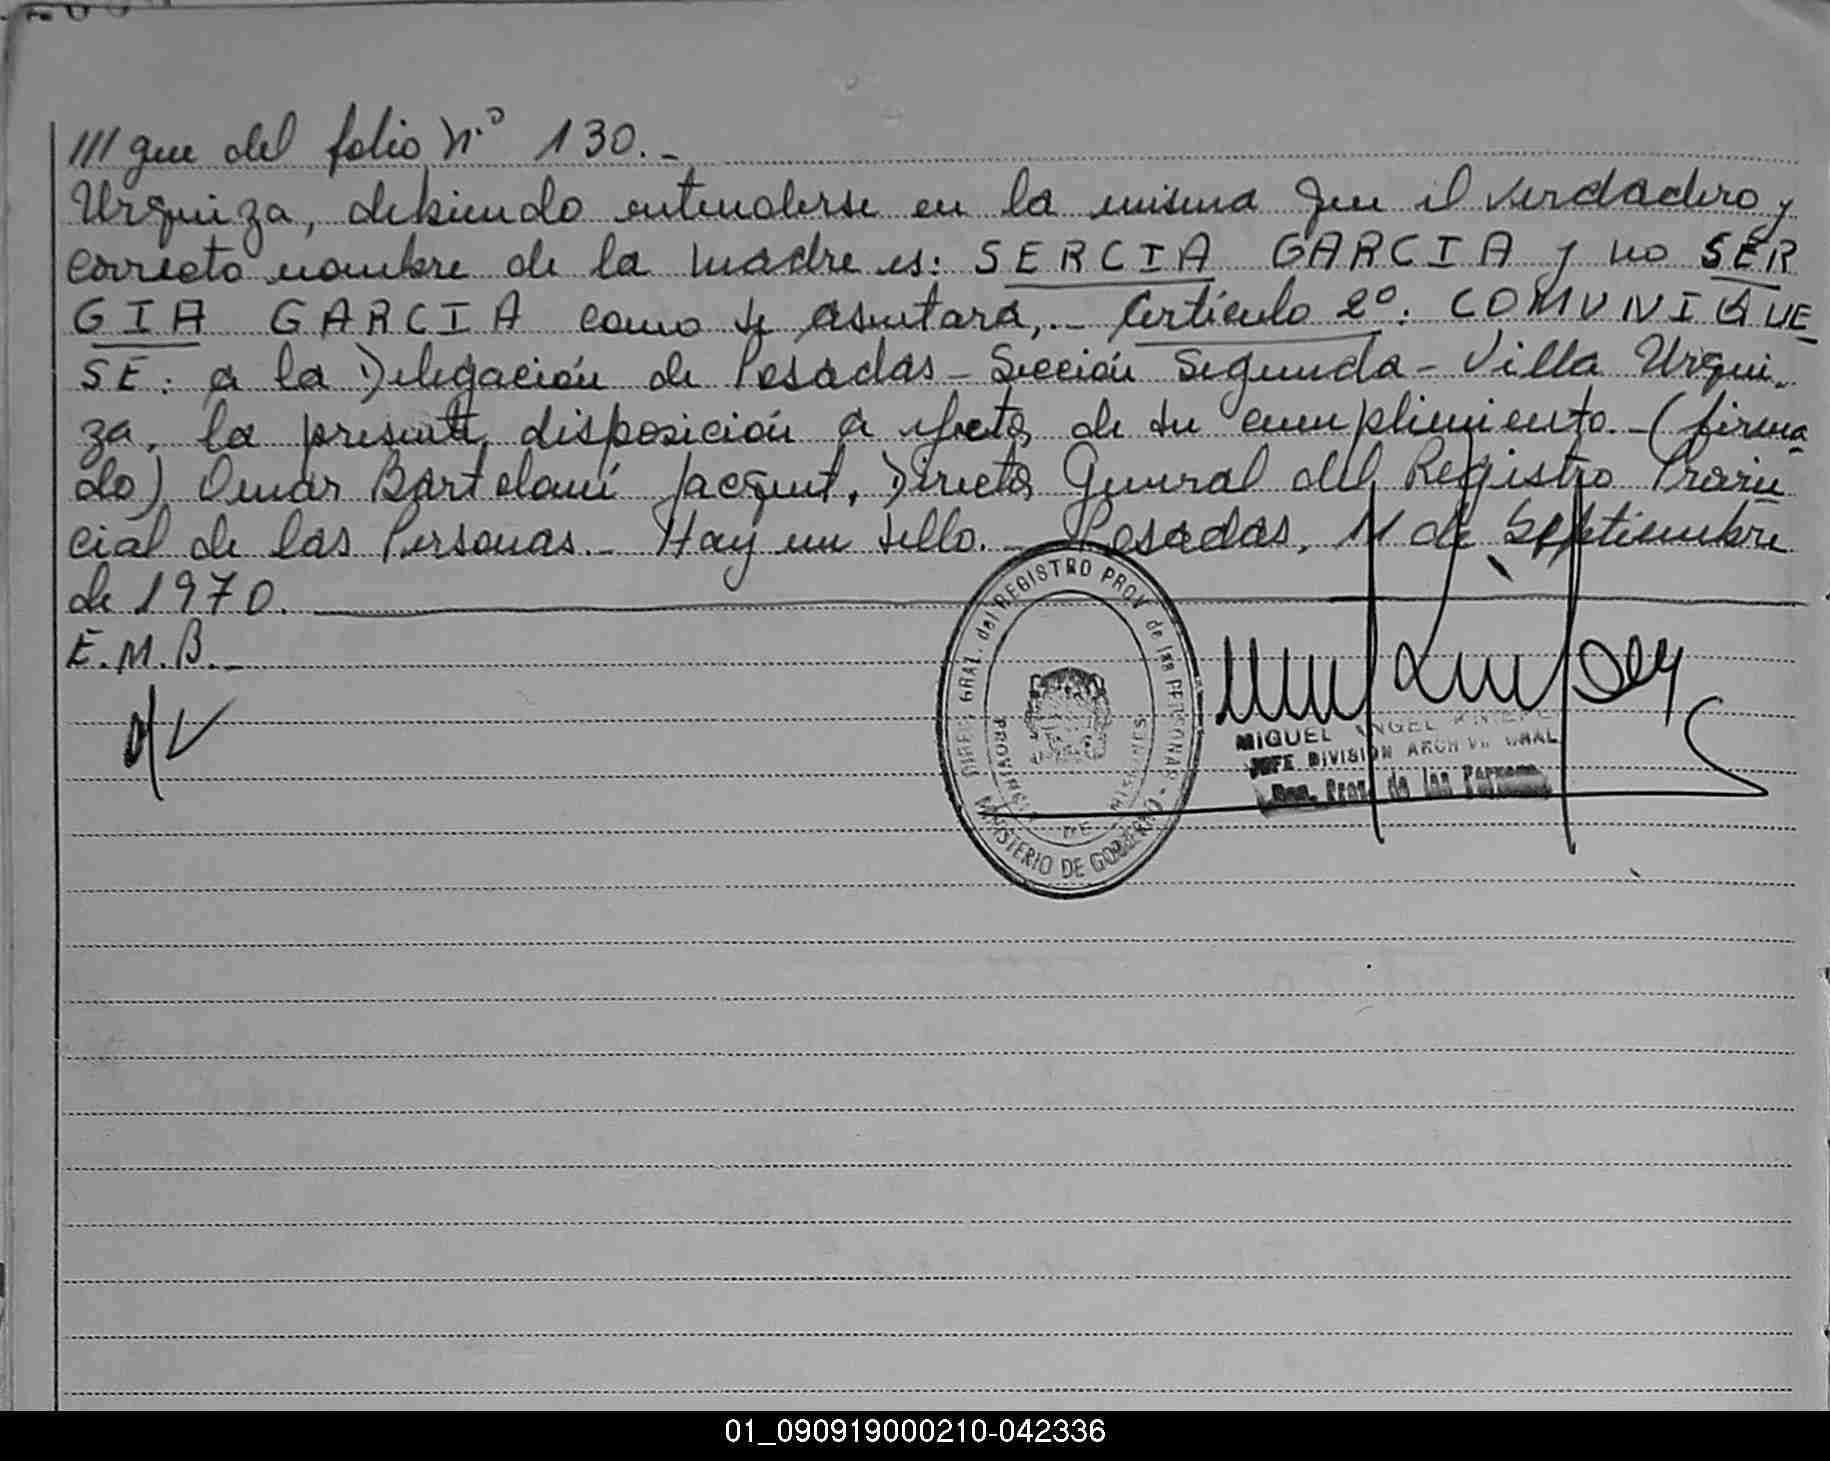 /// gue del folio N.º 130.-
Urquiza, debiendo entenderse en la misma que el verdadero y
correcto nombre de la madre es: SERCIA GARCIA y no SER
GIA GARCIA como se asentara,.- Artículo 2º. COMUNIQUE
SE: a la Delegación de Posadas - Sección Segunda - Villa Urqui-
za, la presente disposición a efectos de su cumplimiento.- (firma
do) Omar Bartolomí Jacquet, Director General del Registro Provin
cial de las Personas.- Hay un sello.- Posadas, 11 de Septiembre
de 1970.
E.M.B.-
DIREC. GRAL. del REGISTRO PROV. de las PERSONAS -
MINISTERIO DE GOBIERNO
PROVINCIA DE MISIONES
MIGUEL ANGEL
JEFE DIVISION ARCHIVO GRAL
Reg. Prov. de las Personas
01_090919000210-042336